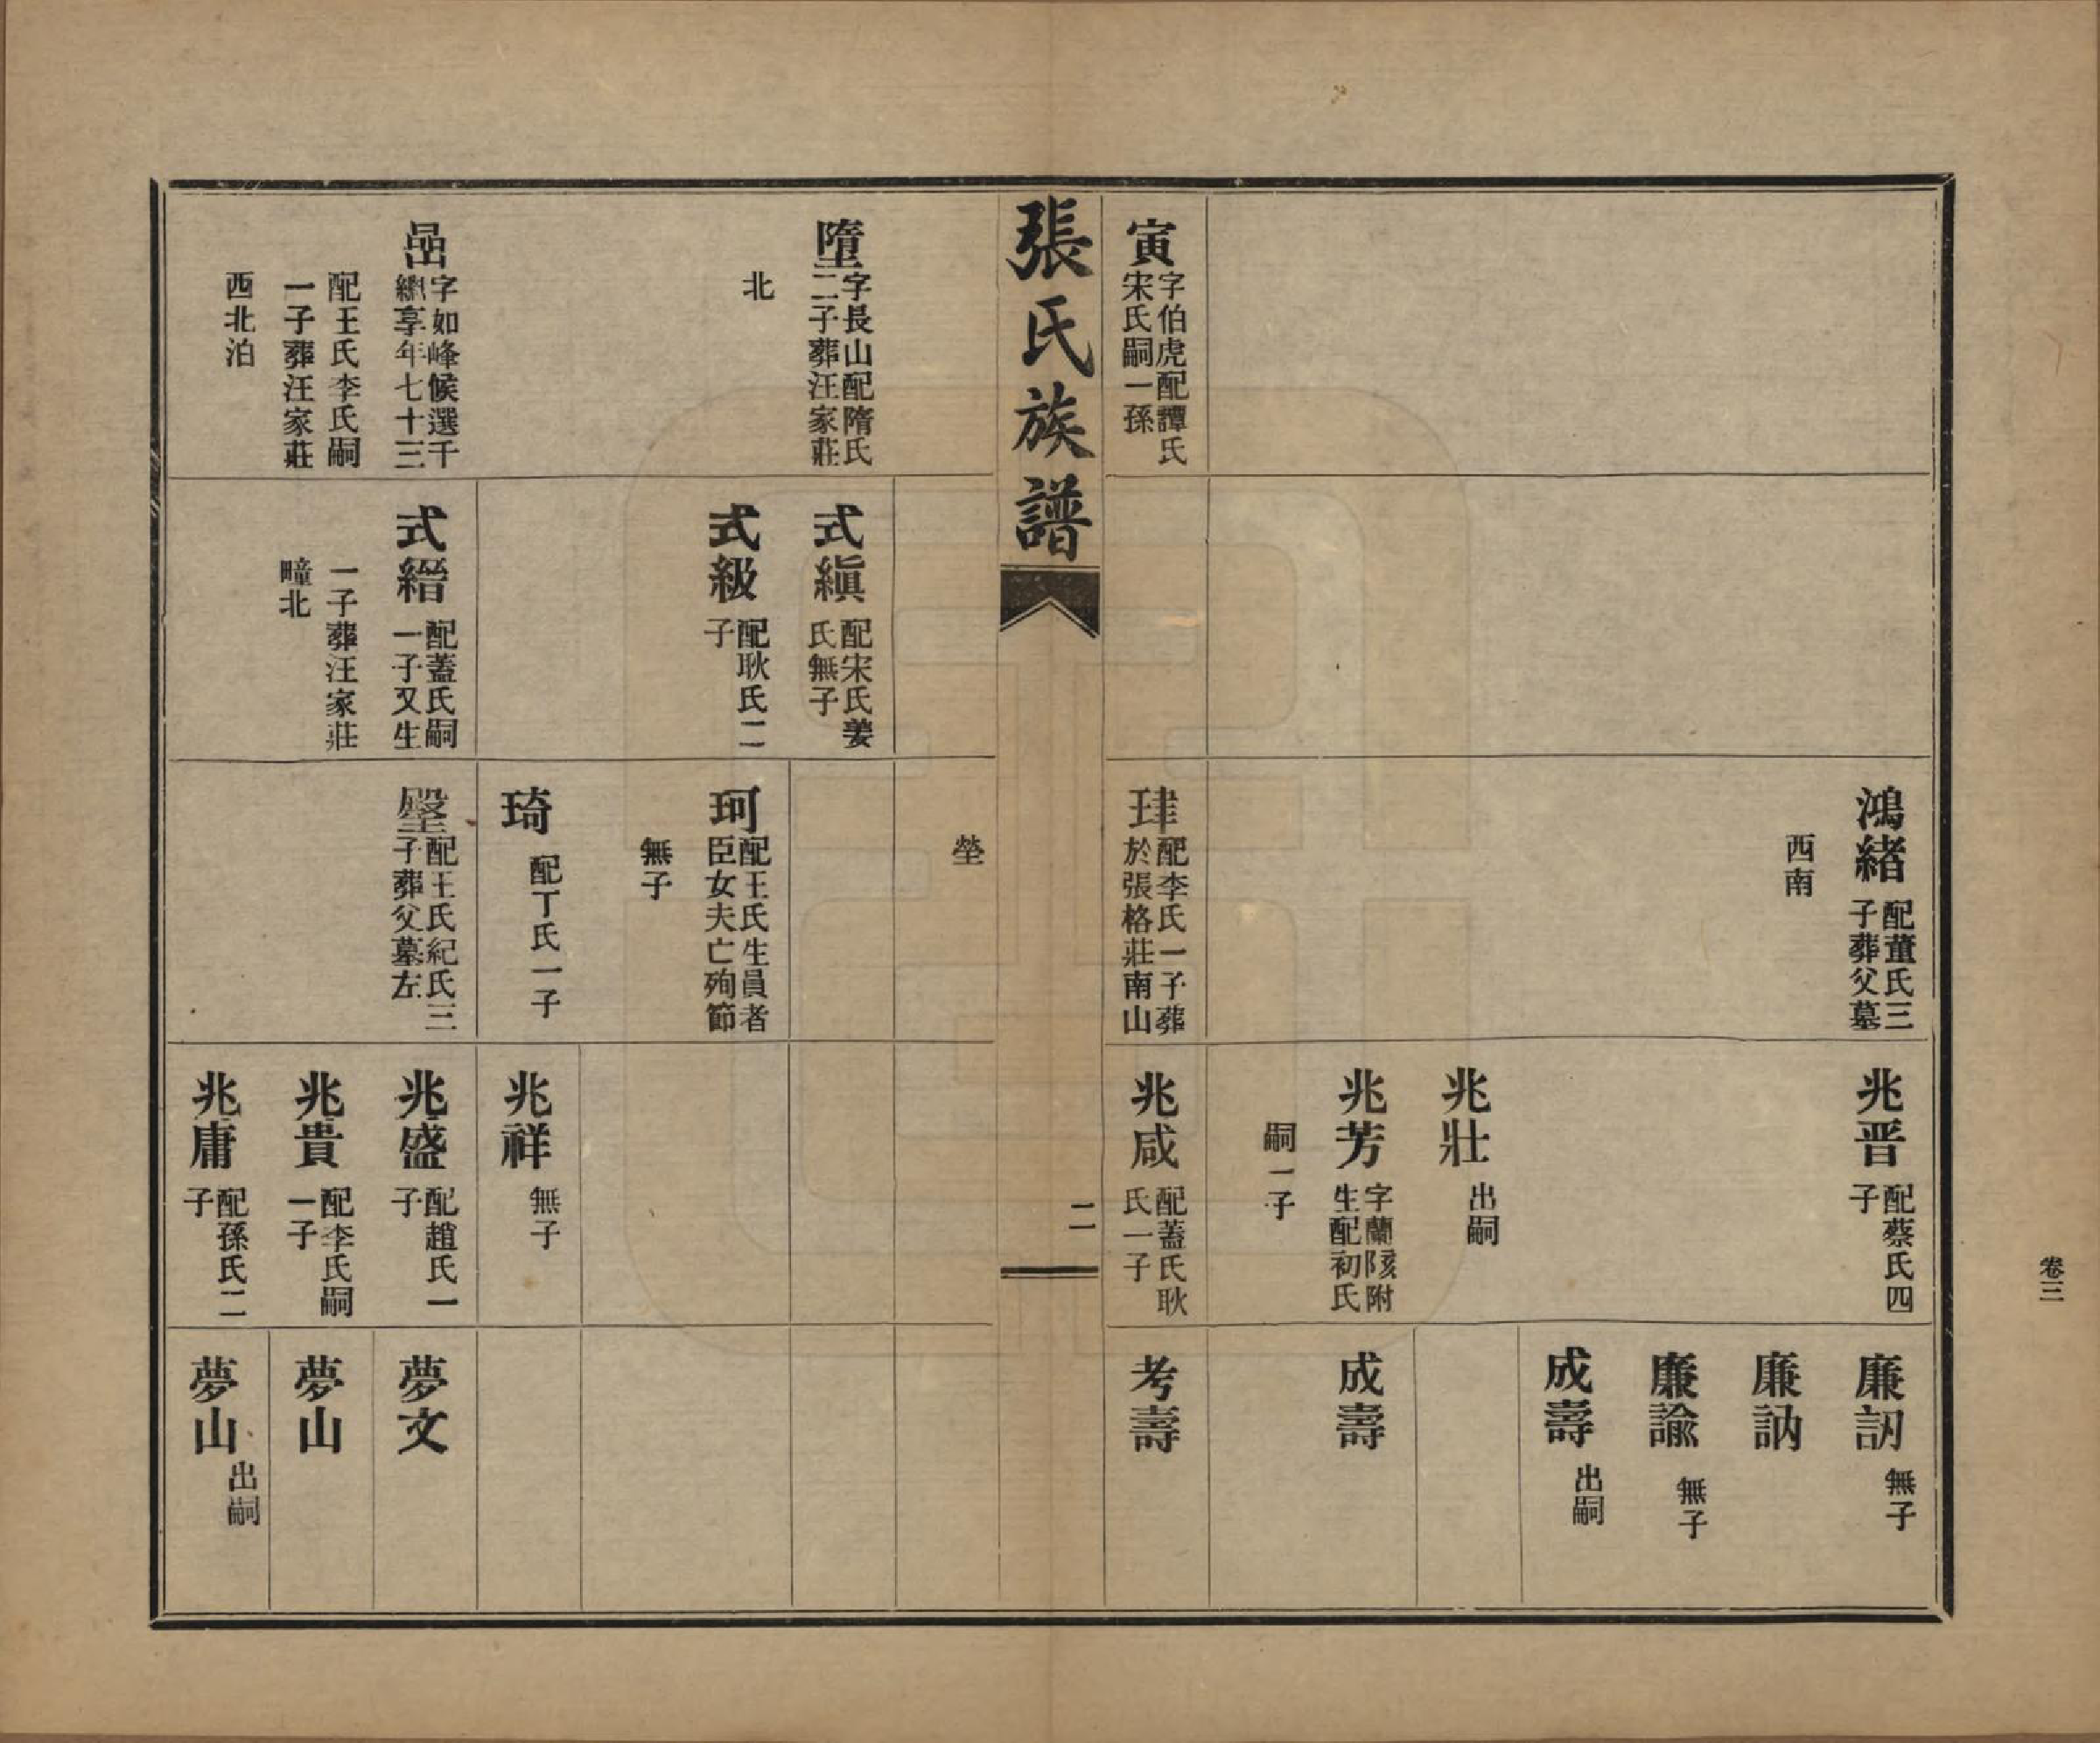 卷三
寅
字伯虎配譚氏
宋氏嗣一孫
鴻緒
配董氏三
子葬父墓
西南
肂
配李氏一子葬
於張格莊南山
兆晋
配蔡氏四
子
兆壯
出嗣
兆芳
字蘭陔附
生配初氏
嗣一子
兆咸
配蓋氏耿
氏一子
廉訒
無子
廉訥
廉諭
無子
成壽
出嗣
成壽
考壽
張氏族譜
二
墮
字長山配隋氏
二子葬汪家莊
北
嵒
字如峰候選千
總享年七十三
配王氏李氏嗣
一子葬汪家莊
西北泊
式縝
配宋氏姜
氏無子
式級
配耿氏二
子
式縉
配蓋氏嗣
一子又生
一子葬汪家莊
疃北
塋
珂
配王氏生員耆
臣女夫亡殉節
無子
琦
配丁氏一子
配王氏紀氏三
子葬父墓左
兆祥
無子
兆盛
配趙氏一
子
兆貴
配李氏嗣
一子
兆庸
配孫氏二
子
夢文
夢山
夢山
出嗣